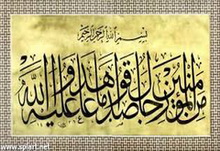 بسم الله الرحمن الرحيم
من المؤمنين رجال صدقوا ما عاهدوا الله عليه
www.splart.net